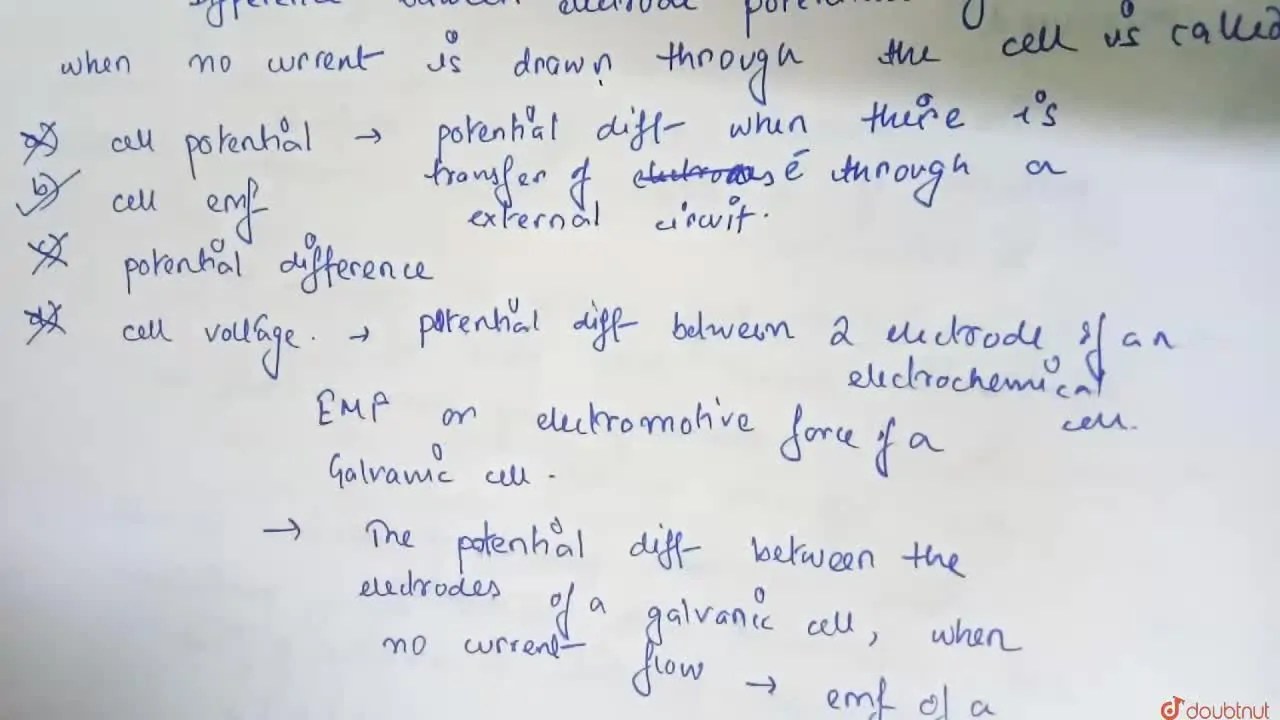 difference between electrode potential
when no current is drawn through the cell is called
a) cell potential → potential diff when there is
transfer of e⁻ through a
external circuit.
b) cell emf
c) potential difference
d) cell voltage. → potential diff between 2 electrode of an
electrochemical
cell.
EMF or electromotive force of a
Galvanic cell.
→ The potential diff between the
electrodes of a galvanic cell, when
no current flow → emf of a
doubtnut